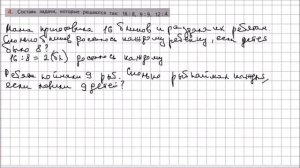 4. Составь задачи, которые решаются так: 16 : 8, 9 : 9, 12 : 4.
Мама приготовила 16 блинов и раздала их ребятам.
Сколько блинов досталось каждому ребёнку, если детей
было 8?
16 : 8 = 2 (бл) досталось каждому
Ребята поймали 9 рыб. Сколько рыб поймал каждый,
если ловили 9 детей?